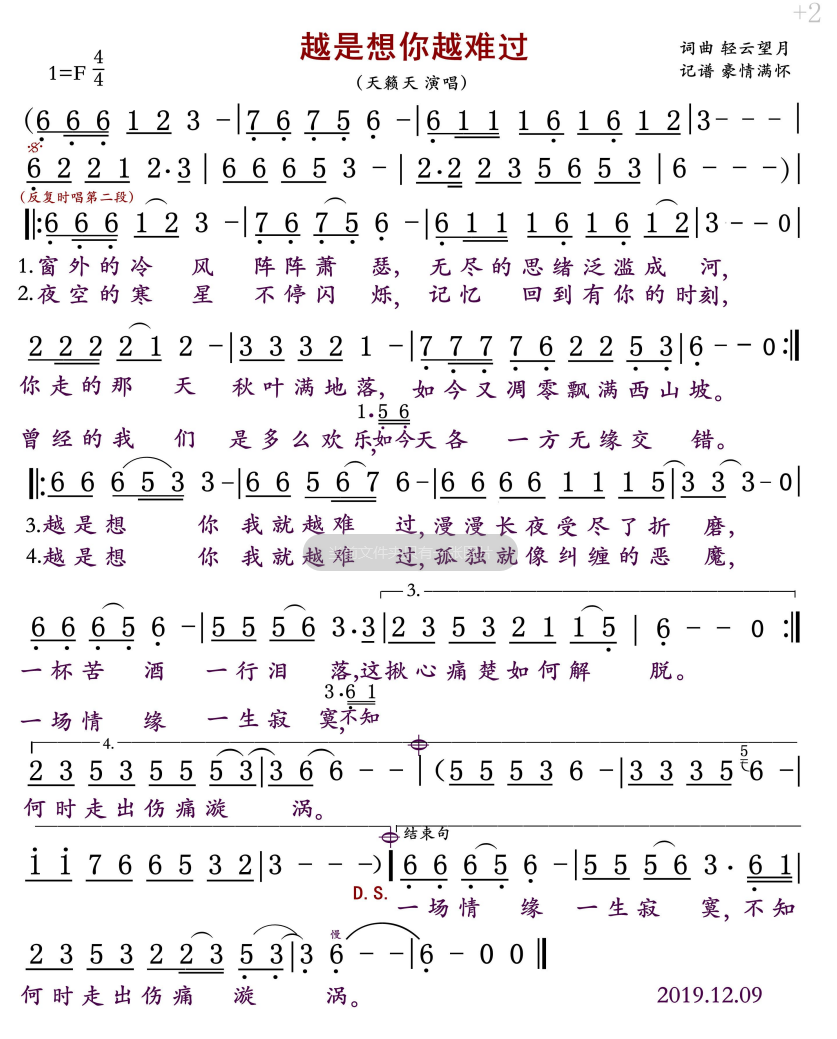 +2
越是想你越难过
1=F 4/4
(天籁天 演唱)
词曲 轻云望月
记谱 豪情满怀
(6 6 6 1 2 3 -|7 6 7 5 6 -|6 1 1 1 6 1 6 1 2|3 - - -|
6 2 2 1 2·3|6 6 6 5 3 -|2·2 2 3 5 6 5 3|6 - - -)|
(反复时唱第二段)
‖:6 6 6 1 2 3 -|7 6 7 5 6 -|6 1 1 1 6 1 6 1 2|3 - - 0|
1.窗外的冷 风 阵阵萧 瑟, 无尽的思绪泛滥成 河,
2.夜空的寒 星 不停闪 烁, 记忆 回到有你的时刻,
2 2 2 2 1 2 -|3 3 3 2 1 -|7 7 7 7 6 2 2 5 3|6 - - 0:‖
你走的那 天 秋叶满地落, 如今又凋零飘满西山坡。
1·5 6
曾经的我 们 是多么欢乐,如今天各 一方无缘交 错。
‖:6 6 6 5 3 3 -|6 6 5 6 7 6 -|6 6 6 6 1 1 1 5|3 3 3 - 0|
3.越是想 你 我就越难 过,漫漫长夜受尽了折 磨,
4.越是想 你 我就越难 过,孤独就像纠缠的恶 魔,
3.
6 6 6 5 6 -|5 5 5 6 3·3|2 3 5 3 2 1 1 5|6 - - 0:‖
一杯苦 酒 一行泪 落,这揪心痛楚如何解 脱。
3·6 1
一场情 缘 一生寂 寞,不知
4.
2 3 5 3 5 5 5 3|3 6 6 - -|(5 5 5 3 6 -|3 3 3 5 5 6 -|
何时走出伤痛漩 涡。
结束句
1 1 7 6 6 5 3 2|3 - - -)|6 6 6 5 6 -|5 5 5 6 3·6 1|
D.S.
一场情 缘 一生寂 寞,不知
慢
2 3 5 3 2 2 3 5 3|3 6 - -|6 - 0 0‖
何时走出伤痛 漩 涡。
2019.12.09